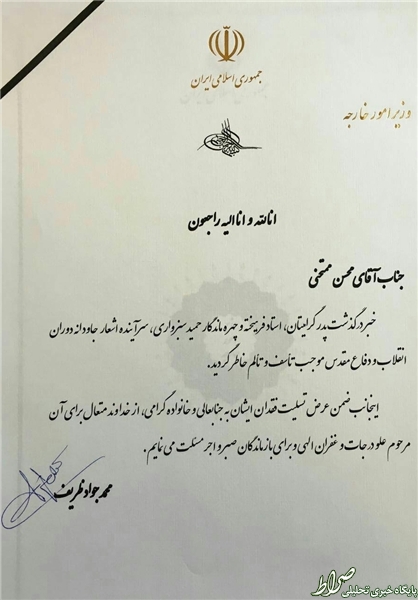 جمهوری اسلامی ایران
وزیر امور خارجه
انالله و اناالیه راجعون
جناب آقای محسن ممتحنی
خبر درگذشت پدر گرامیتان، استاد فریخته و چهره ماندگار حمید سبزواری، سرآینده اشعار جاودانه دوران
انقلاب و دفاع مقدس موجب تأسف و تألم خاطر گردید.
اینجانب ضمن عرض تسلیت فقدان ایشان به جنابعالی و خانواده گرامی، از خداوند متعال برای آن
مرحوم علو درجات و غفران الهی و برای بازماندگان صبر و اجر مسئلت می نمایم.
محمد جواد ظریف
صراط
پایگاه خبری تحلیلی